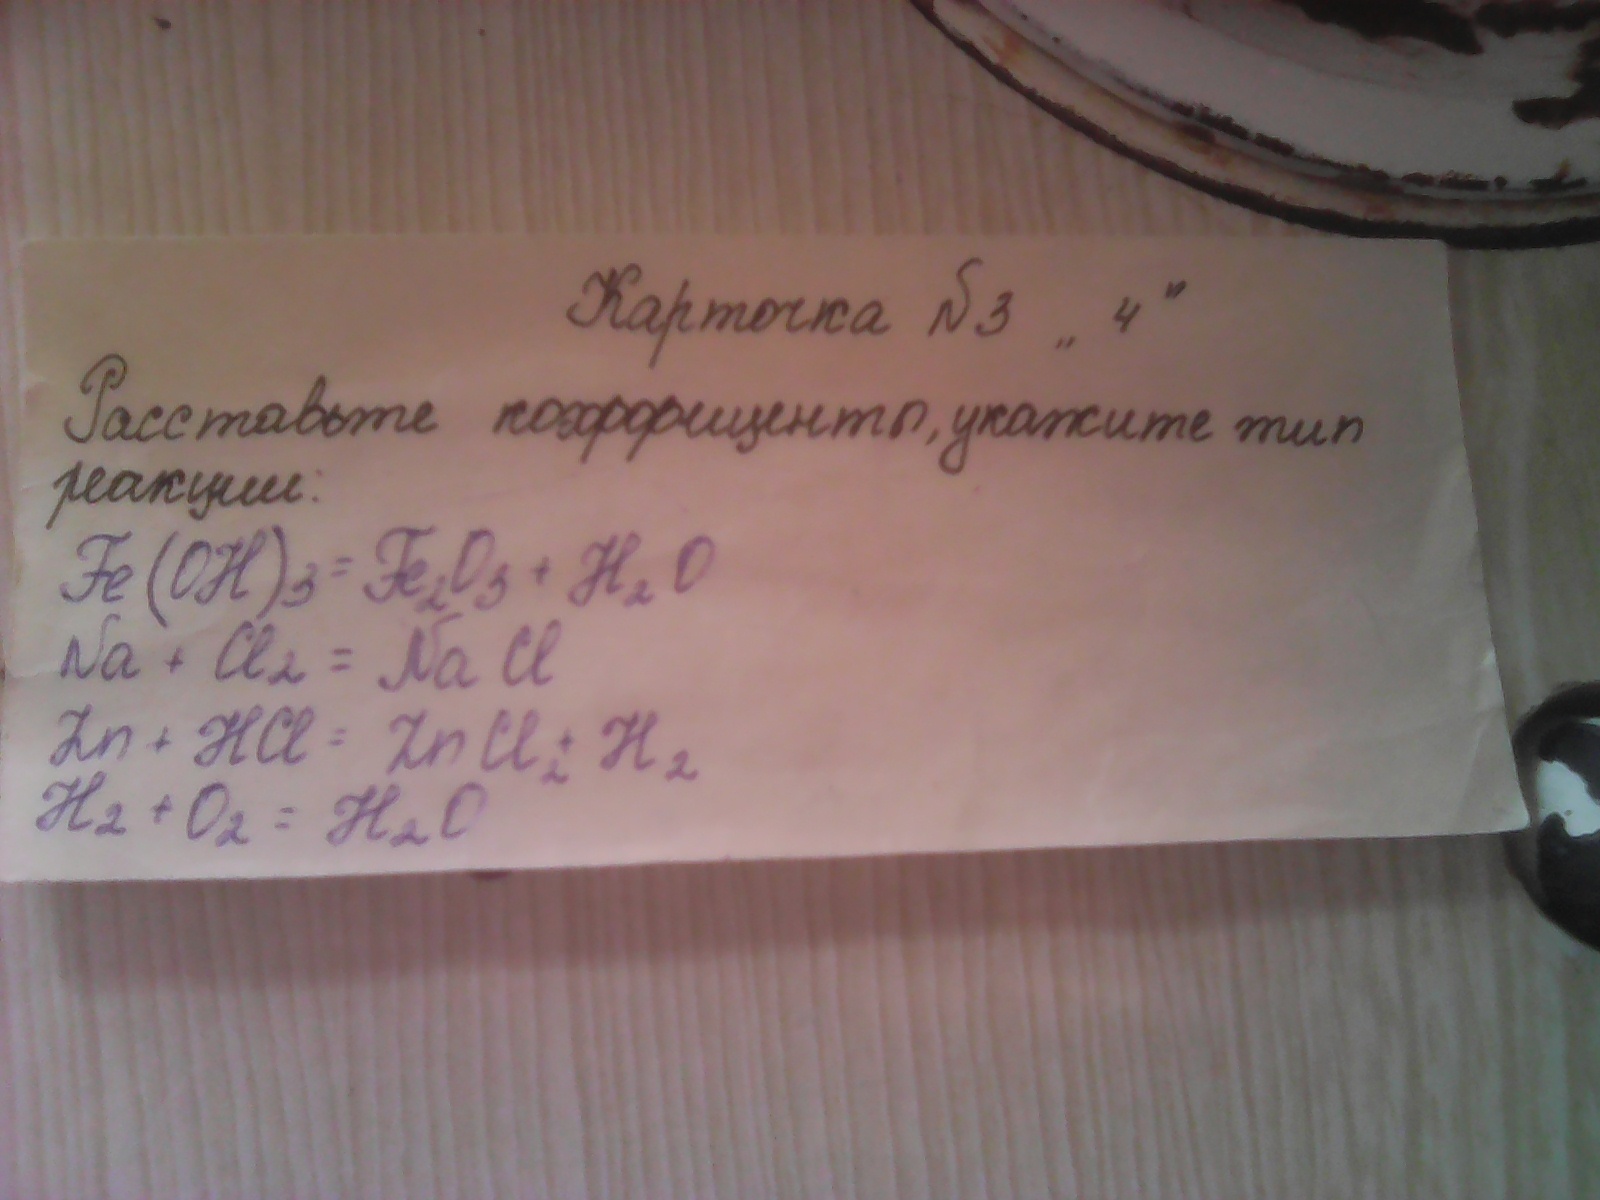 Карточка №3 „4"
Расставьте коэффициенты, укажите тип
реакции:
Fe(OH)₃ = Fe₂O₃ + H₂O
Na + Cl₂ = NaCl
Zn + HCl = ZnCl₂ + H₂
H₂ + O₂ = H₂O